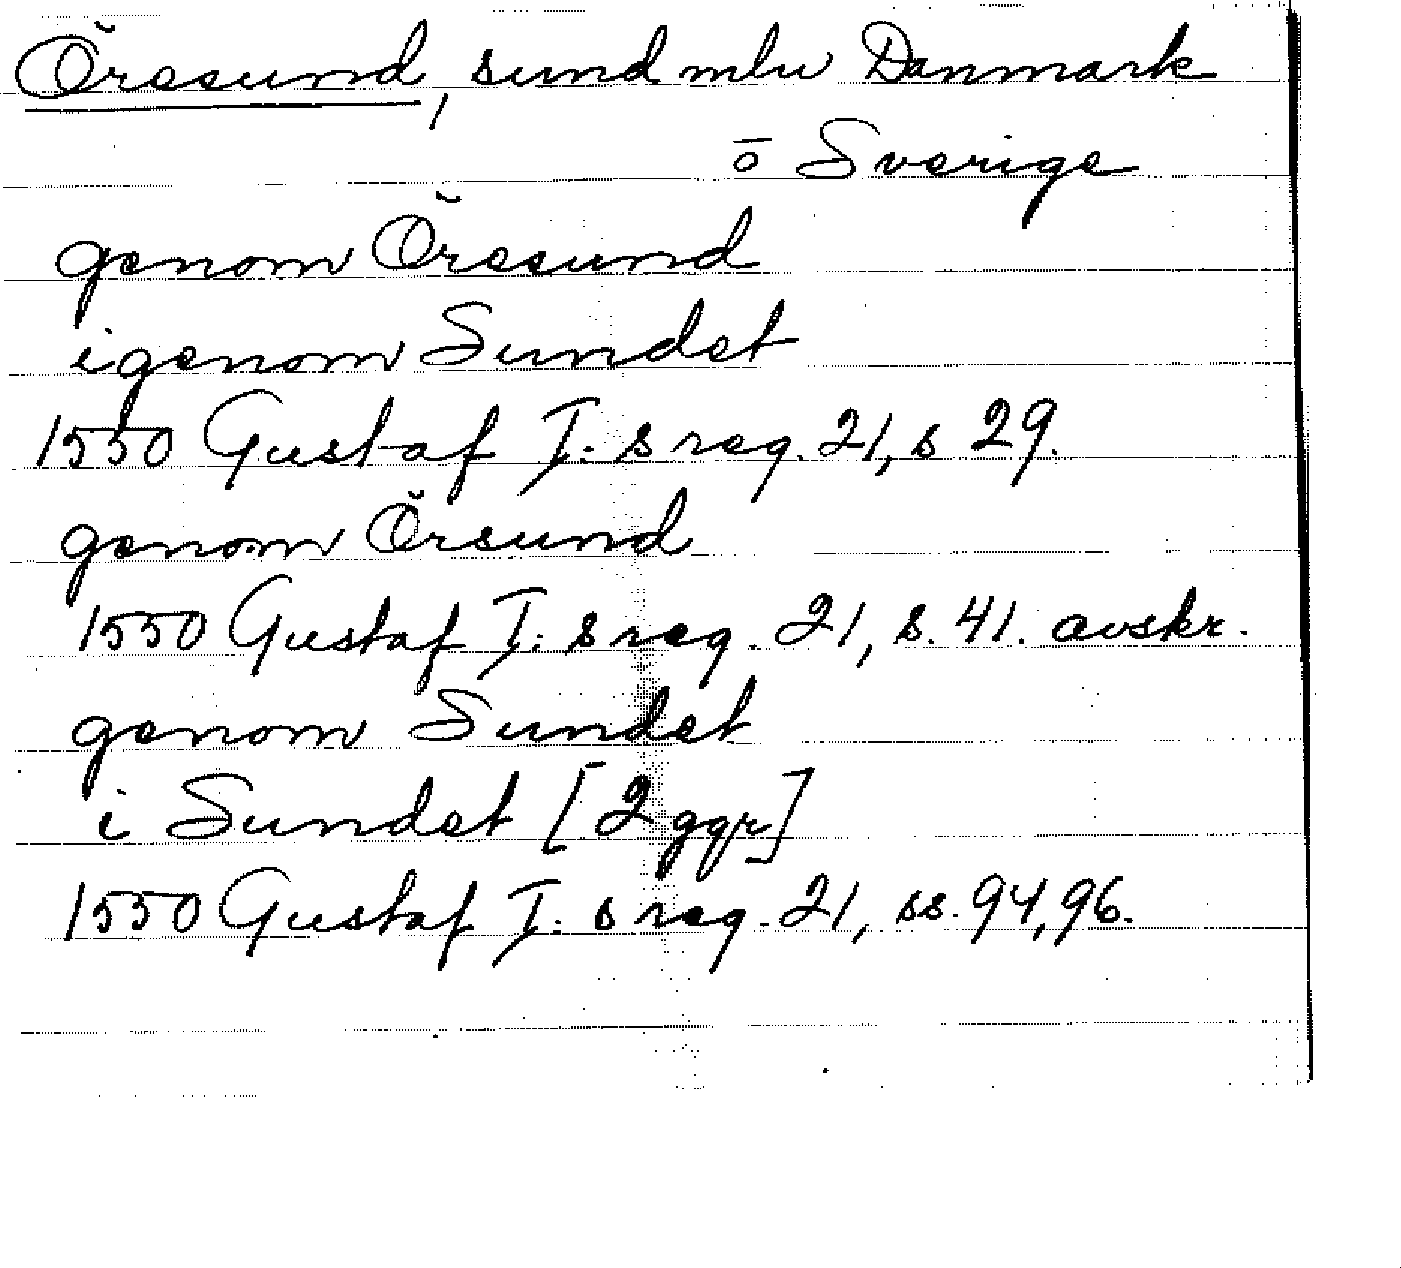 Öresund, sund mlu Danmark
ō Sverige
genom Öresund
igenom Sundet
1550 Gustaf I: s reg. 21, s 29.
genom Örsund
1550 Gustaf I: s reg. 21, s. 41. avskr.
genom Sundet
i Sundet [2 ggr]
1550 Gustaf I: s reg. 21, ss. 94, 96.